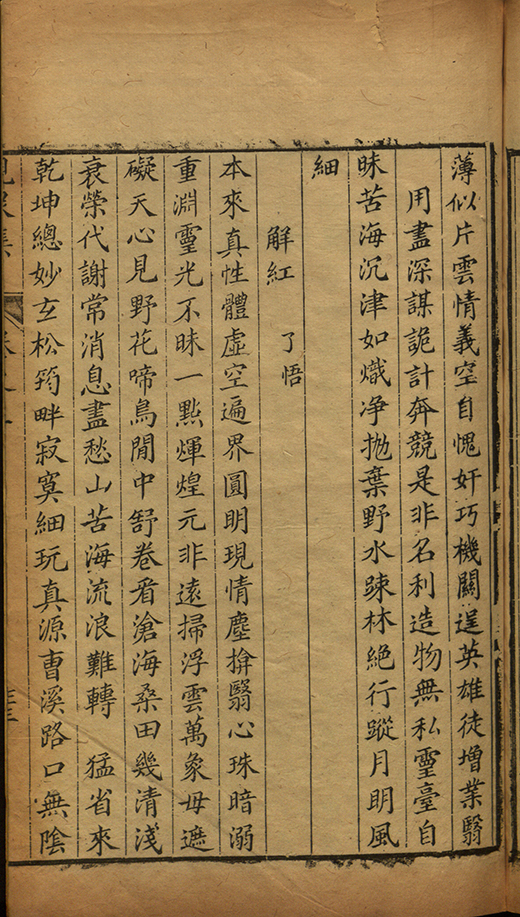 薄似片雲情義空自愧奸巧機關逞英雄徒增業翳
用盡深謀詭計奔競是非名利造物無私靈臺自
昧苦海沉津如熾净拋棄野水踈林絶行蹤月明風
細
解紅　了悟
本來真性體虛空遍界圓明現情塵揜翳心珠暗溺
重淵靈光不昧一點煇煌元非遠掃浮雲萬象毋遮
礙天心見野花啼鳥閒中舒卷看滄海桑田幾清淺
衰榮代謝常消息盡愁山苦海流浪難轉　猛省來
乾坤總妙玄松筠畔寂寞細玩真源曺溪路口無陰